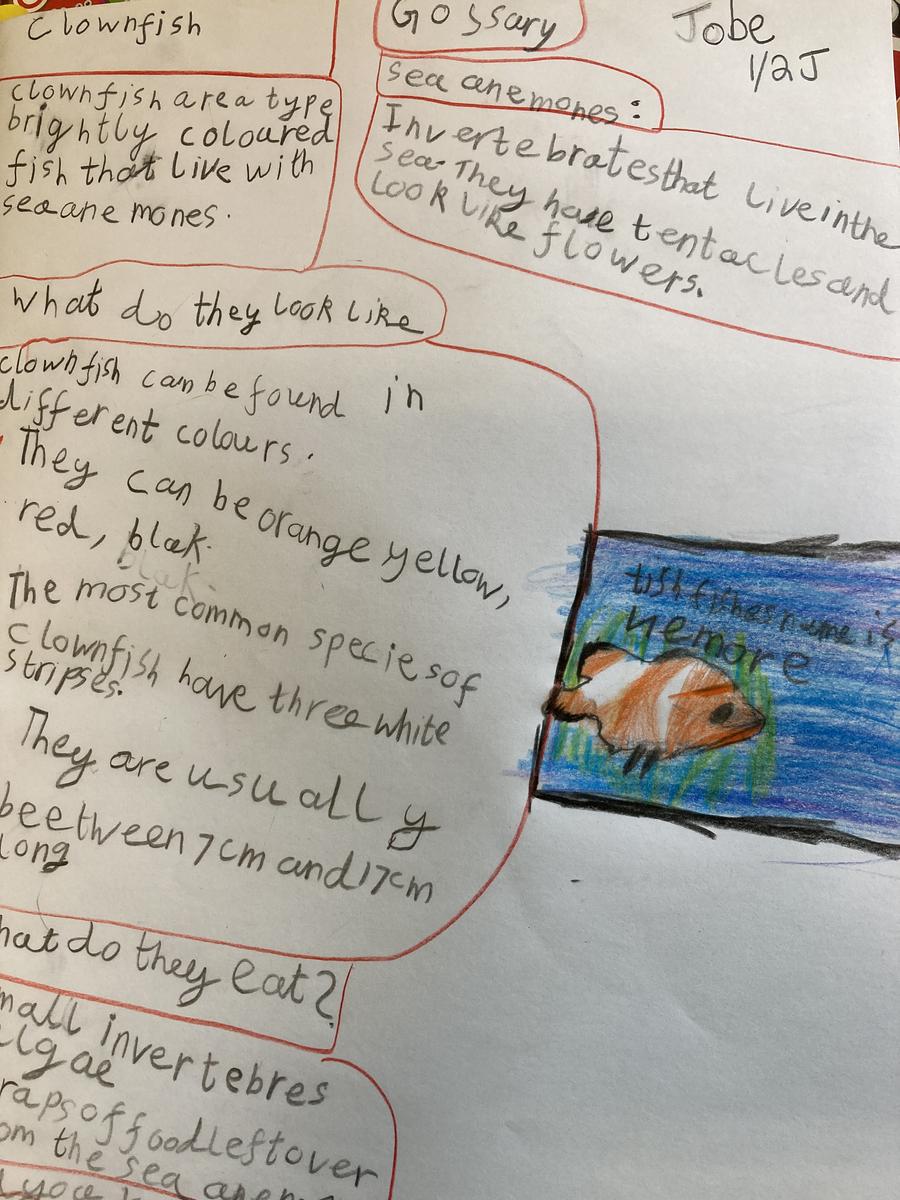 Clownfish
clownfish are a type
brightly coloured
fish that live with
sea ane mones.
Glossary
sea anemones:
Invertebrates that live in the
sea. They have tentacles and
look like flowers.
Jobe
1/2J
what do they look like
clownfish can be found in
different colours.
They can be orange yellow,
red, blak.
The most common species of
clownfish have three white
stripses.
They are usually
beetween 7cm and 17cm
long
tish fishes name is
nemore
hat do they eat?
mall invertebres
lgae
raps of food left over
om the sea anem